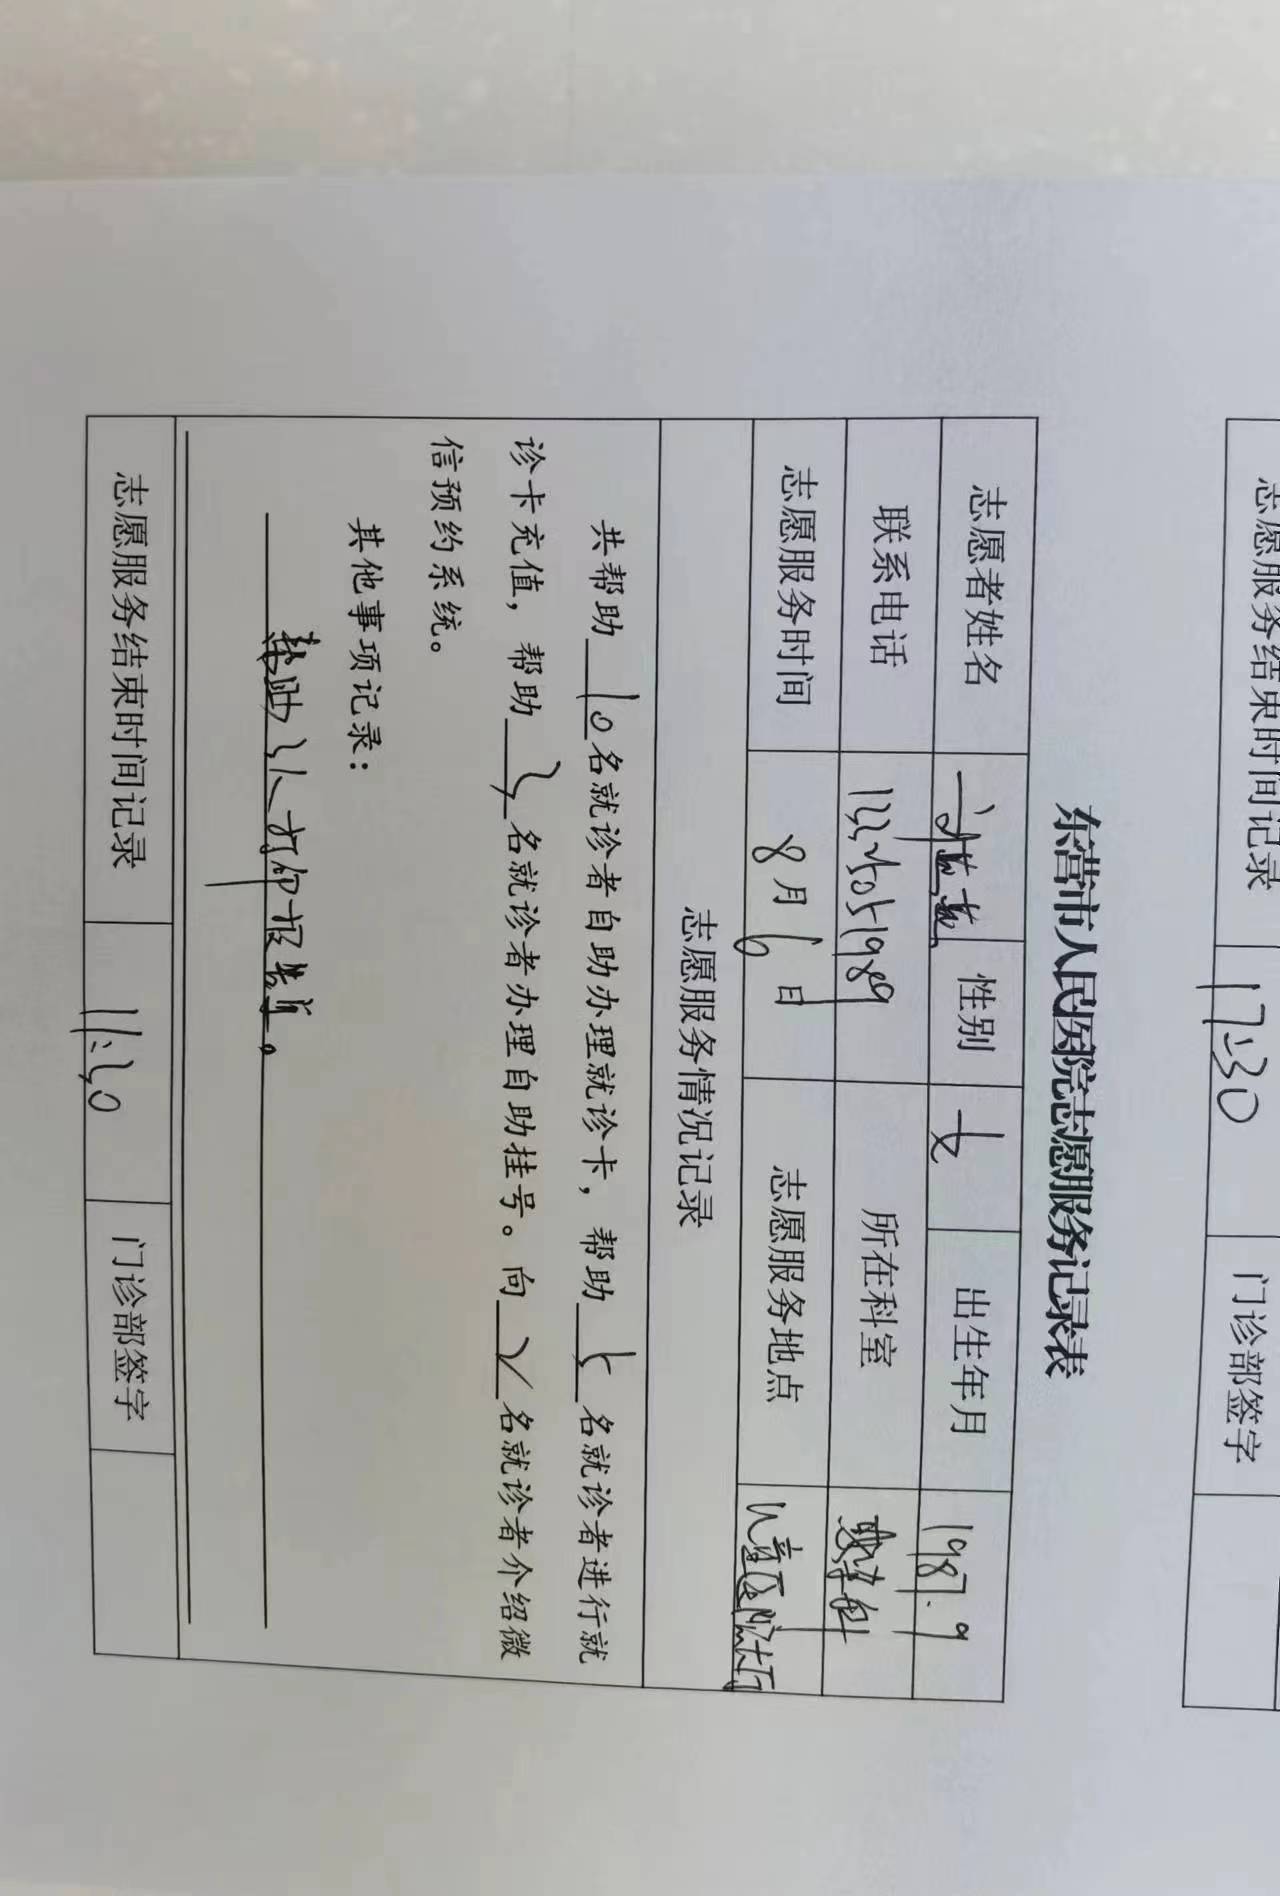 志愿服务结束时间记录 17:30 门诊部签字
东营市人民医院志愿服务记录表
志愿者姓名 性别 女 出生年月 1987.9
联系电话 所在科室
志愿服务时间 8月6日 志愿服务地点 儿童医院大厅
志愿服务情况记录
共帮助10名就诊者自助办理就诊卡，帮助 名就诊者进行就
诊卡充值，帮助 名就诊者办理自助挂号。向 名就诊者介绍微
信预约系统。
其他事项记录：
帮助 人打印报告单。
志愿服务结束时间记录 11:30 门诊部签字